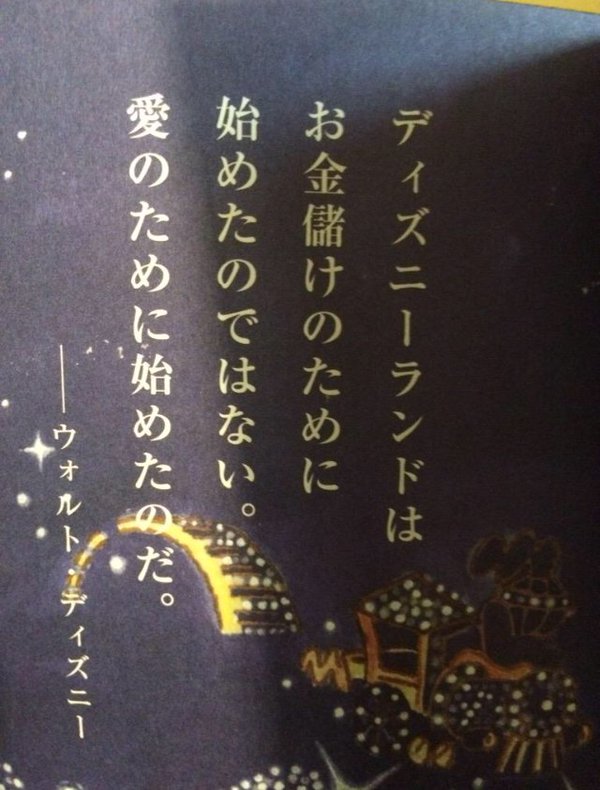 ディズニーランドは
お金儲けのために
始めたのではない。
愛のために始めたのだ。
──ウォルト・ディズニー